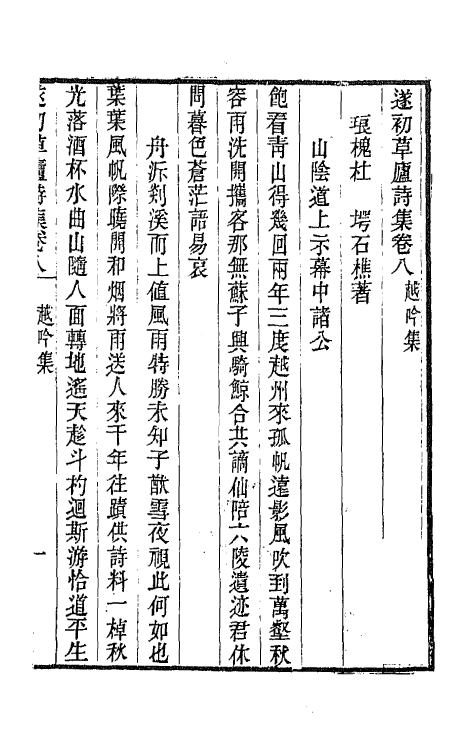 遂初草廬詩集卷八 越吟集
琅槐杜 堮石樵著
山陰道上示幕中諸公
飽看青山得幾回兩年三度越州來孤帆遠影風吹到萬壑秋
容雨洗開攜客那無蘇子興騎鯨合共謫仙陪六陵遺迹君休
問暮色蒼茫語易哀
舟泝剡溪而上值風雨特勝未知子猷雪夜視此何如也
葉葉風帆際曉開和烟將雨送人來千年往蹟供詩料一棹秋
光落酒杯水曲山隨人面轉地遙天趁斗杓迴斯游恰道平生
遂初草廬詩集卷八 越吟集 一